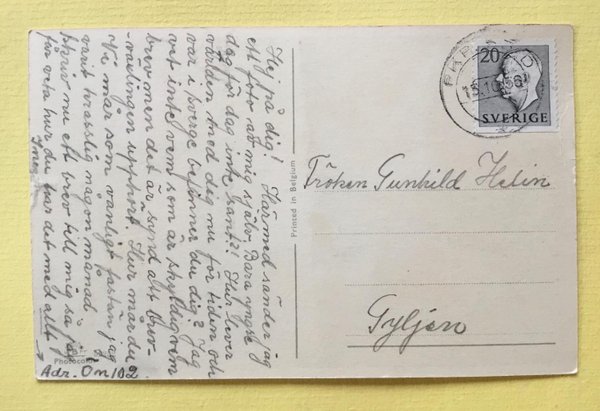 Hej på dig! Härmed sänder jag
ett foto av mig själv. Bara yngre
dag för dag inte sant?! Hur lever
världen med dig nu för tiden och
var i sverge befinner du dig? Jag
vet inte vem som är skyldig vem
brev men det är synd att brev-
växlingen upphört. Hur mår du
Vi mår som vanligt fastän jag
varit krasslig någon månad
skriv nu ett brev till mig så jag
får veta hur du har det med allt
Adr. Ön 102.
Photocolor
Printed in Belgium
20
SVERIGE
15.10.56
Fröken Gunhild Helin
Gyljen